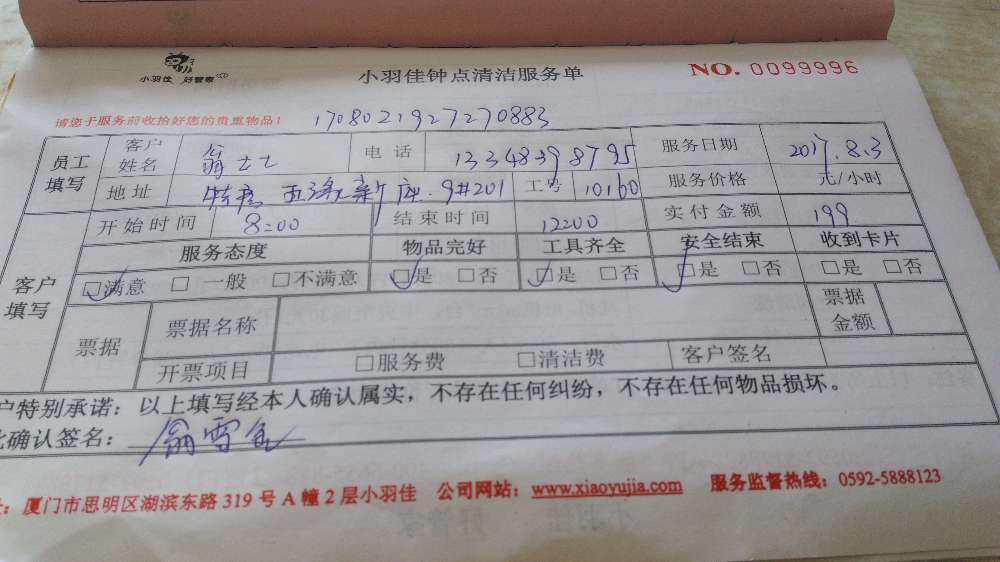 小羽佳 好管家
小羽佳钟点清洁服务单
NO. 0099996
请您于服务前收拾好您的贵重物品！ 170802192727 0883
员工填写 客户姓名 翁女士 电话 13348398795 服务日期 2017.8.3
地址 9#201 工号 10160 服务价格 元/小时
开始时间 8:00 结束时间 12:00 实付金额 199
客户填写 服务态度 物品完好 工具齐全 安全结束 收到卡片
□满意 □一般 □不满意 □是 □否 □是 □否 □是 □否 □是 □否
票据 票据名称 票据金额
开票项目 □服务费 □清洁费 客户签名
户特别承诺：以上填写经本人确认属实，不存在任何纠纷，不存在任何物品损坏。
此确认签名：
：厦门市思明区湖滨东路 319 号 A 幢 2 层小羽佳 公司网站：www.xiaoyujia.com 服务监督热线：0592-5888123